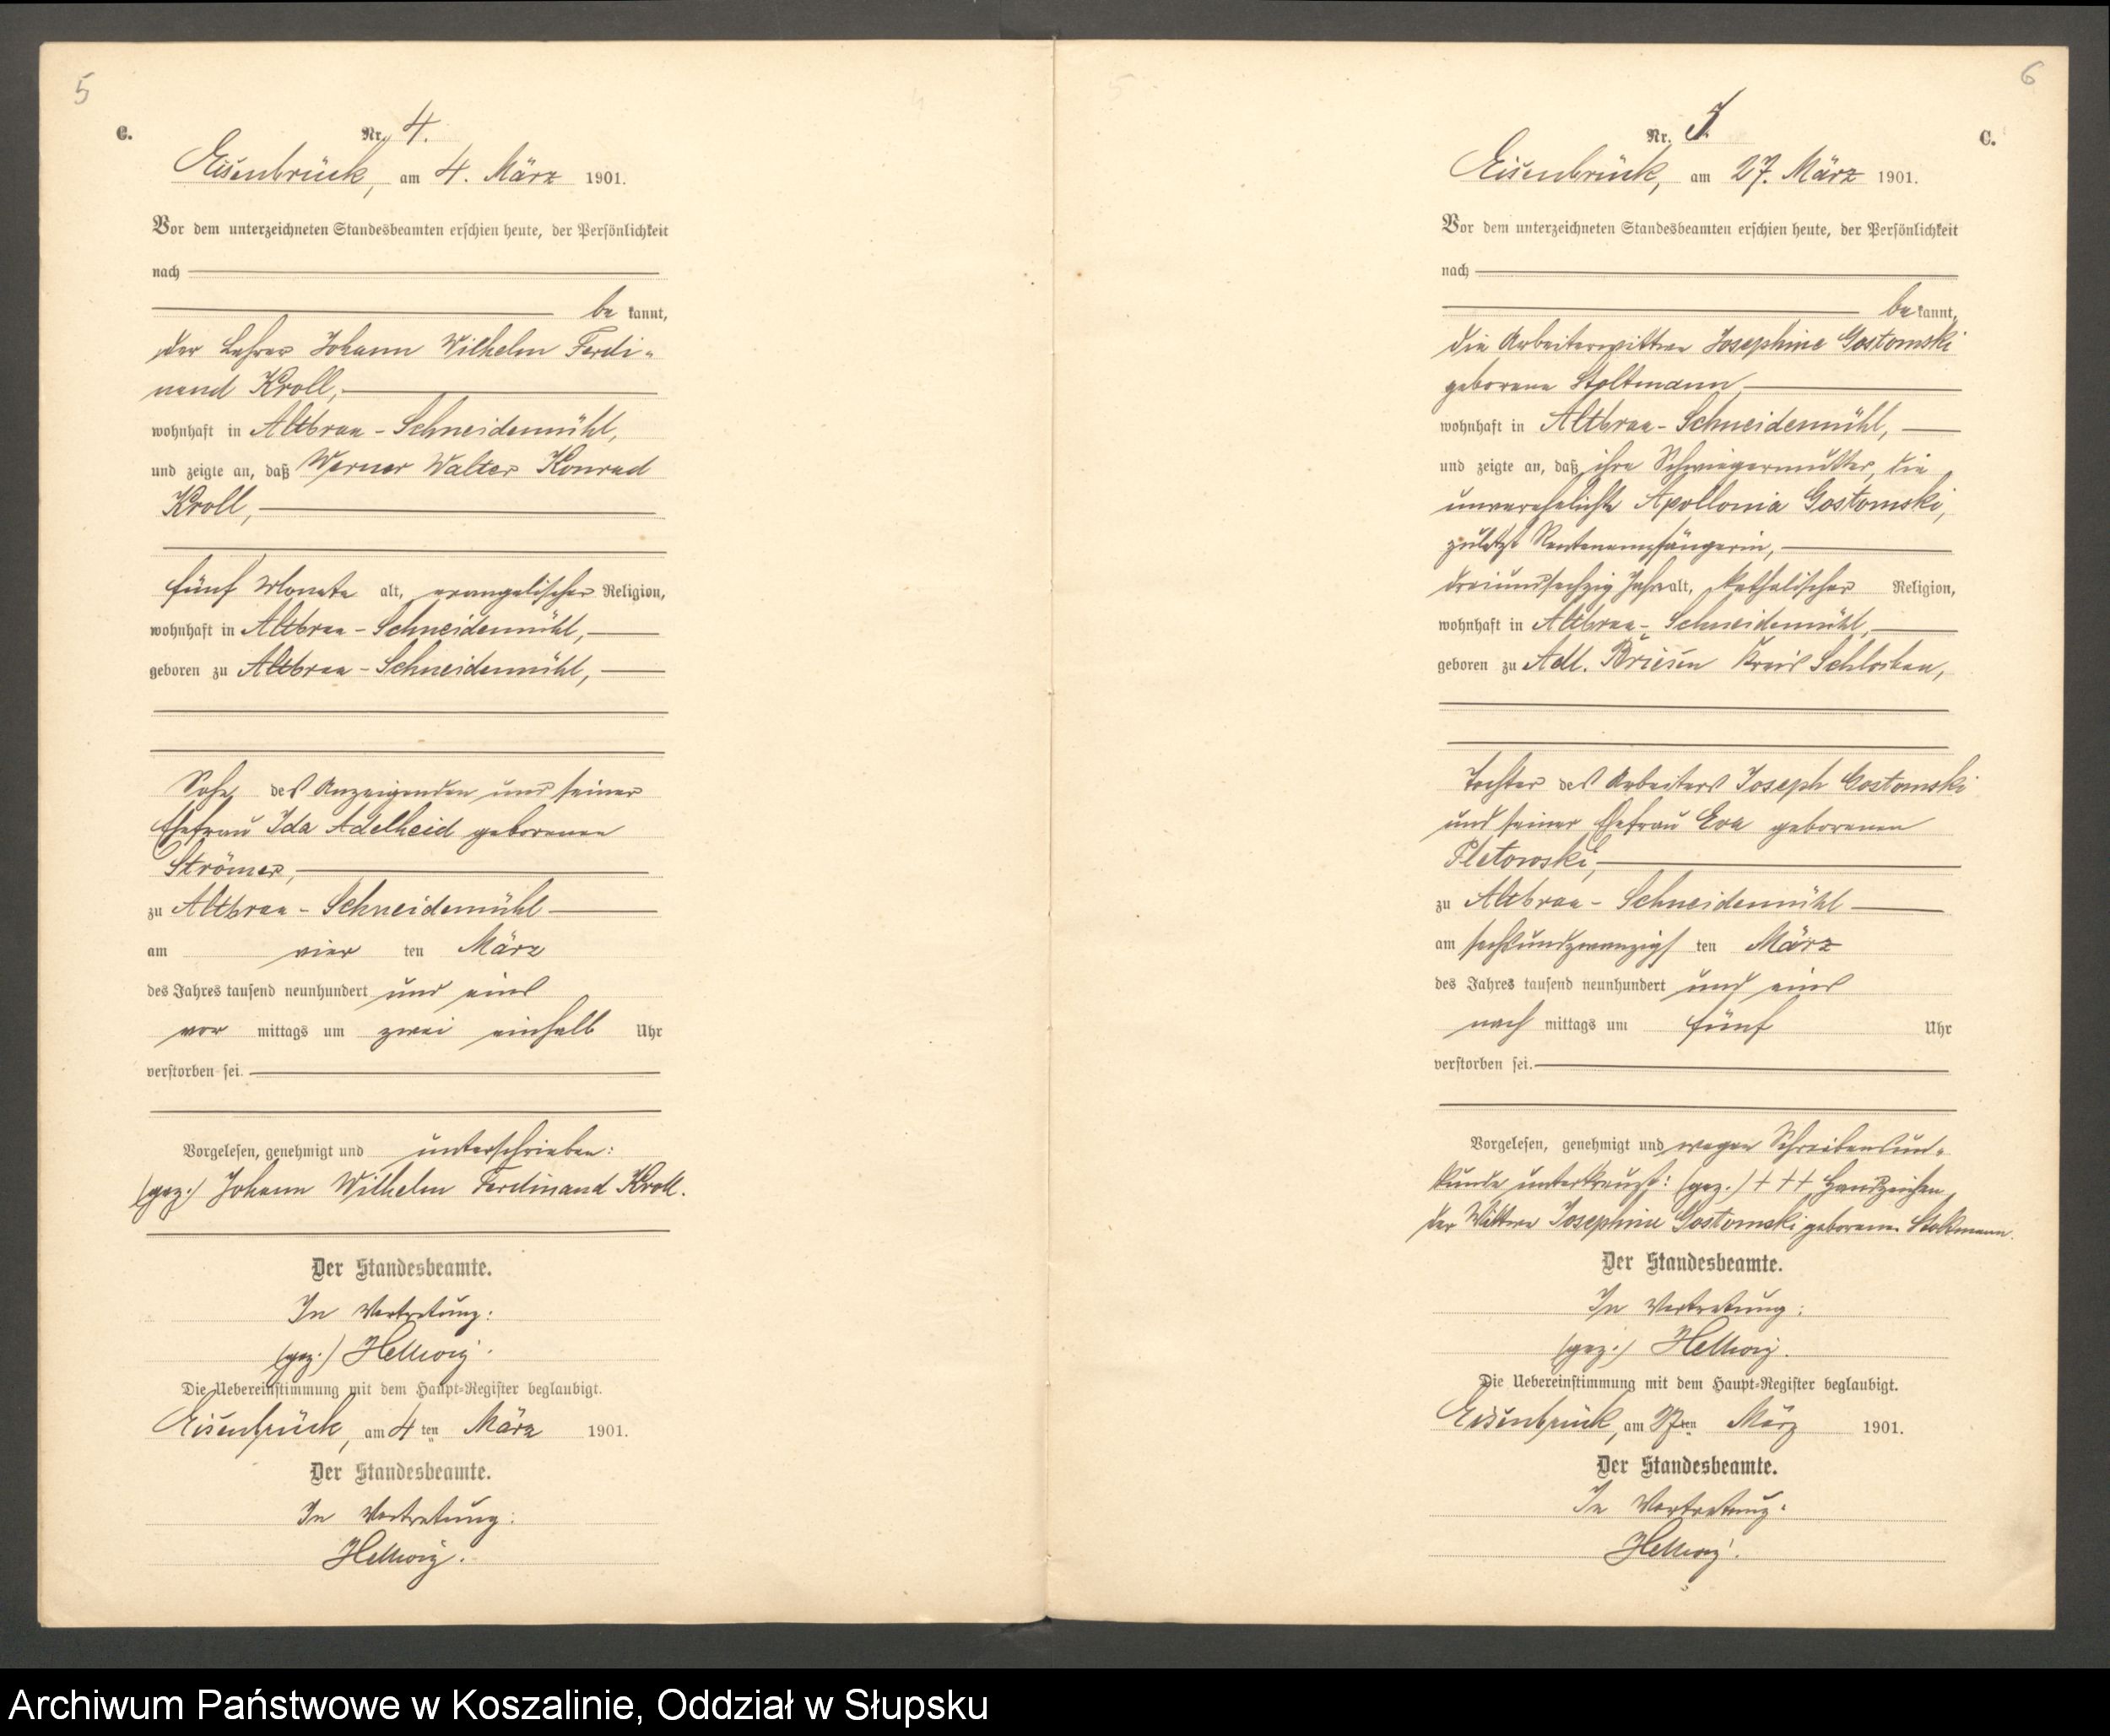 5
C.
Nr. 4.
Eisenbrück, am 4. März 1901.
Vor dem unterzeichneten Standesbeamten erschien heute, der Persönlichkeit
nach
be kannt,
der Lehrer Johann Wilhelm Ferdi-
nand Kroll,
wohnhaft in Altbraa-Schneidemühl,
und zeigte an, daß Werner Walter Konrad
Kroll,
fünf Monate alt, evangelischer Religion,
wohnhaft in Altbraa-Schneidemühl,
geboren zu Altbraa-Schneidemühl,
Sohn des Anzeigenden und seiner
Ehefrau Ida Adelheid geborenen
Strömer,
zu Altbraa-Schneidemühl
am vier ten März
des Jahres tausend neunhundert und eins
vor mittags um zwei einhalb Uhr
verstorben sei.
Vorgelesen, genehmigt und unterschrieben:
(gez.) Johann Wilhelm Ferdinand Kroll.
Der Standesbeamte.
In Vertretung:
(gez.) Hellwig.
Die Uebereinstimmung mit dem Haupt-Register beglaubigt.
Eisenbrück, am 4 ten März 1901.
Der Standesbeamte.
In Vertretung:
Hellwig.
6
C.
Nr. 5
Eisenbrück, am 27. März 1901.
Vor dem unterzeichneten Standesbeamten erschien heute, der Persönlichkeit
nach
be kannt,
die Arbeiterwittwe Josephine Gostomski
geborene Stoltmann
wohnhaft in Altbraa-Schneidemühl,
und zeigte an, daß ihre Schwiegermutter, die
unverehelichte Apollonia Gostomski,
zuletzt Rentenempfängerin,
dreiundsechzig Jahre alt, katholischer Religion,
wohnhaft in Altbraa-Schneidemühl,
geboren zu Adl. Briesen Kreis Schlochau,
Tochter des Arbeiters Joseph Gostomski
und seiner Ehefrau Eva geborenen
zu Altbraa-Schneidemühl
am sechsundzwanzigs ten März
des Jahres tausend neunhundert und eins
nach mittags um fünf Uhr
verstorben sei.
Vorgelesen, genehmigt und wegen Schreibensun-
kunde unterkreuzt: (gez.) + + + Handzeichen
der Wittwe Josephine Gostomski geborenen Stoltmann.
Der Standesbeamte.
In Vertretung:
(gez.) Hellwig.
Die Uebereinstimmung mit dem Haupt-Register beglaubigt.
Eisenbrück, am 27 ten März 1901.
Der Standesbeamte.
In Vertretung:
Hellwig.
Archiwum Państwowe w Koszalinie, Oddział w Słupsku